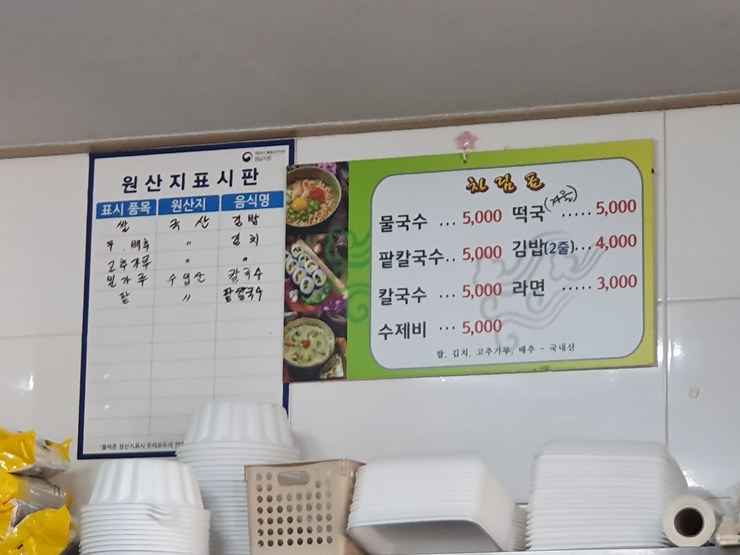 원산지표시판
표시 품목 원산지 음식명
쌀 국산 김밥
무. 배추 〃 김치
고추가루 〃 〃
밀가루 수입산 칼국수
팥 〃 팥칼국수
올바른 원산지표시 우리모두의
차림표
물국수 ... 5,000 떡국 ..... 5,000
팥칼국수.. 5,000 김밥(2줄)... 4,000
칼국수 ... 5,000 라면 ..... 3,000
수제비 ... 5,000
쌀, 김치, 고추가루, 배추 - 국내산